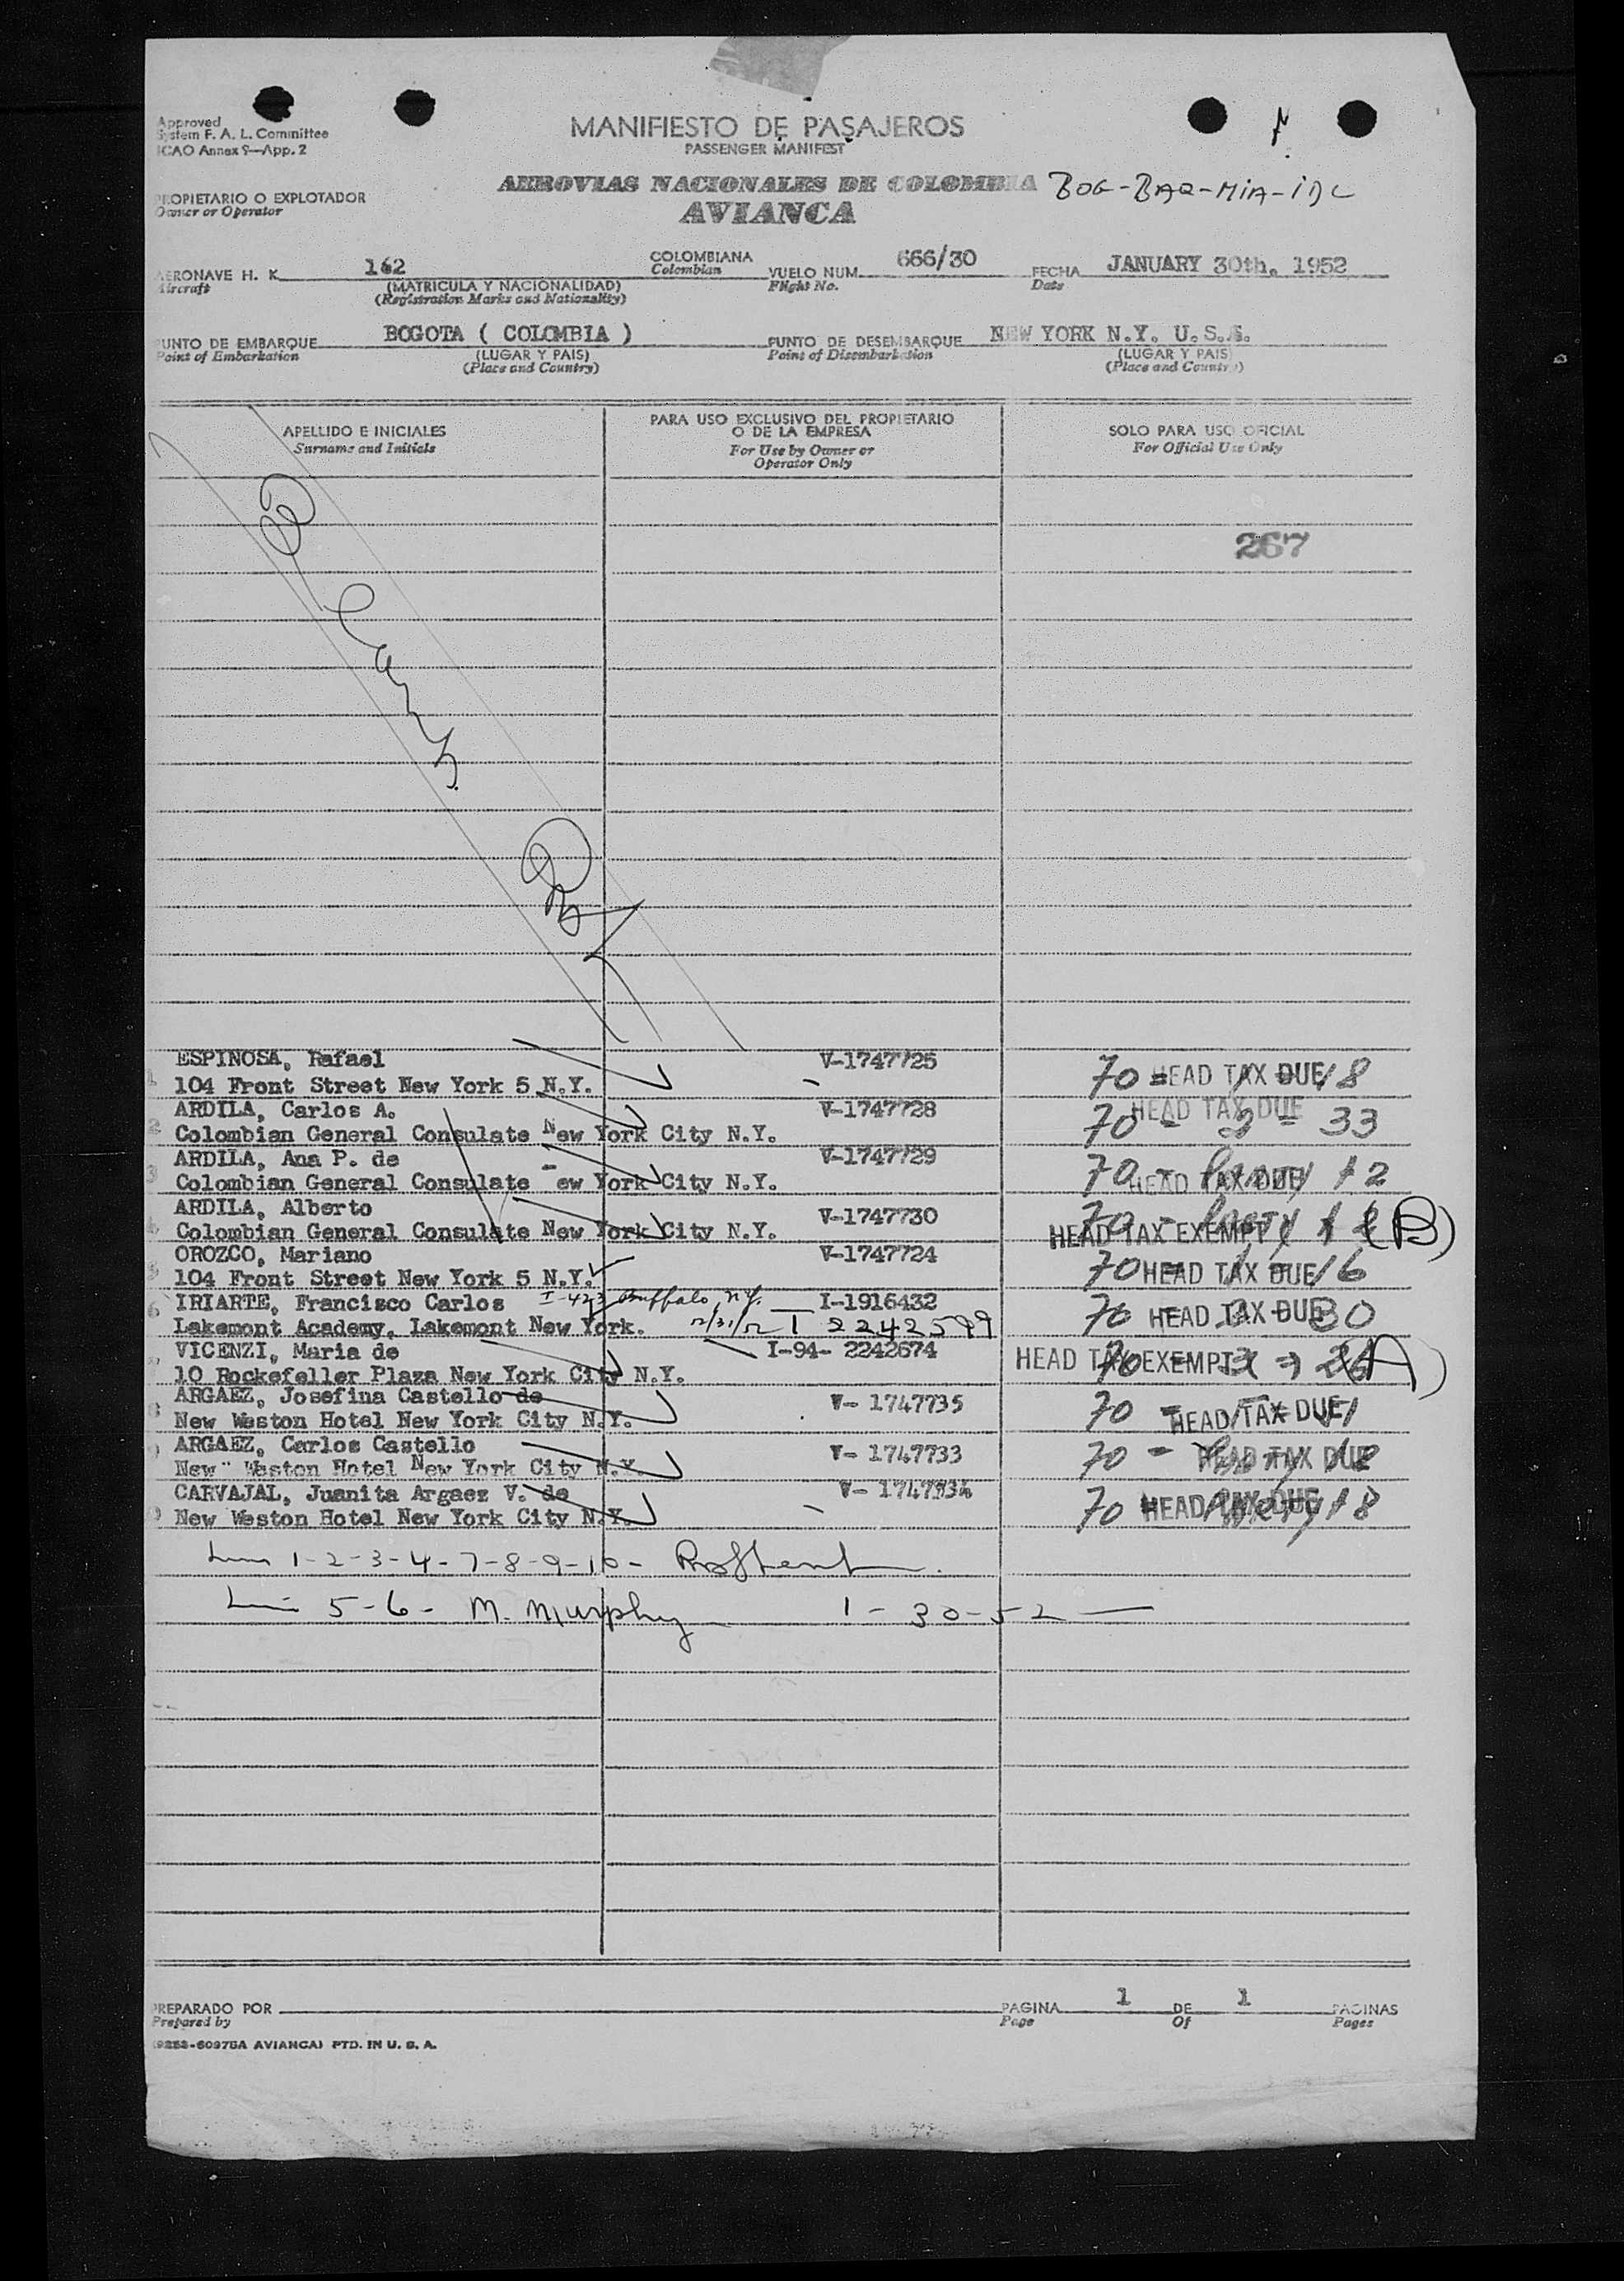 Approved
System F. A. L. Committee
ICAO Annex 9—App. 2
MANIFIESTO DE PASAJEROS
PASSENGER MANIFEST
PROPIETARIO O EXPLOTADOR
Owner or Operator
AEROVIAS NACIONALES DE COLOMBIA
AVIANCA
BOG-BAQ-MIA-IDL
AERONAVE H. K. 162
Aircraft
(MATRICULA Y NACIONALIDAD)
(Registration Marks and Nationality)
COLOMBIANA
Colombian
VUELO NUM. 666/30
Flight No.
FECHA JANUARY 30th, 1952
Date
PUNTO DE EMBARQUE BOGOTA ( COLOMBIA )
Point of Embarkation
(LUGAR Y PAIS)
(Place and Country)
PUNTO DE DESEMBARQUE NEW YORK N.Y. U.S.A.
Point of Disembarkation
(LUGAR Y PAIS)
(Place and Country)
APELLIDO E INICIALES
Surname and Initials
PARA USO EXCLUSIVO DEL PROPIETARIO
O DE LA EMPRESA
For Use by Owner or
Operator Only
SOLO PARA USO OFICIAL
For Official Use Only
267
ESPINOSA, Rafael V-1747725
1 104 Front Street New York 5 N.Y. 70 HEAD TAX DUE 18
ARDILA, Carlos A. V-1747728
2 Colombian General Consulate New York City N.Y. 70 - 2 - 33 HEAD TAX DUE
ARDILA, Ana P. de V-1747729
3 Colombian General Consulate ew York City N.Y. 70 HEAD TAX DUE 12
ARDILA, Alberto V-1747730
4 Colombian General Consulate New York City N.Y. 70 HEAD TAX EXEMPT (B)
OROZCO, Mariano V-1747724
5 104 Front Street New York 5 N.Y. 70 HEAD TAX DUE 16
IRIARTE, Francisco Carlos I-423 Buffalo, N.Y. I-1916432
6 Lakemont Academy, Lakemont New York. 12/31/52 I 2242599 70 HEAD TAX DUE 30
VICENZI, Maria de I-94- 2242674
7 10 Rockefeller Plaza New York City N.Y. 70 HEAD TAX EXEMPT (A)
ARGAEZ, Josefina Castello de V- 1747735
8 New Weston Hotel New York City N.Y. 70 - HEAD TAX DUE
ARGAEZ, Carlos Castello V- 1747733
9 New Weston Hotel New York City N.Y. 70 - HEAD TAX DUE
CARVAJAL, Juanita Argaez V. de V- 1747734
New Weston Hotel New York City N.Y. 70 HEAD TAX DUE 18
1-2-3-4-7-8-9-10-
5-6- M. Murphy 1-30-52
PREPARADO POR
Prepared by
PAGINA 1 DE 1 PAGINAS
Page Of Pages
(9253-60975A AVIANCA) PTD. IN U. S. A.